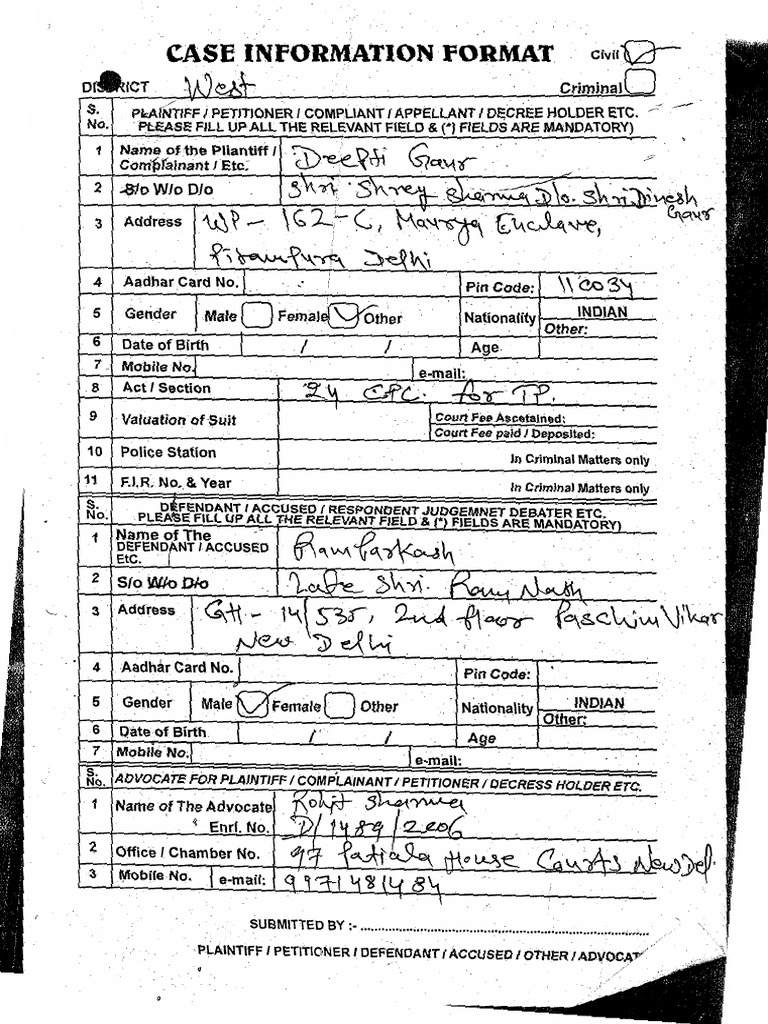 CASE INFORMATION FORMAT Civil
DISTRICT West Criminal
S. No. PLAINTIFF / PETITIONER / COMPLIANT / APPELLANT / DECREE HOLDER ETC.
PLEASE FILL UP ALL THE RELEVANT FIELD & (*) FIELDS ARE MANDATORY)
1 Name of the Pliantiff / Complainant / Etc. Deepti Gaur
2 S/o W/o D/o Shri Shrey Sharma D/o. Shri Dinesh Gaur
3 Address WP - 162-C, Maurya Enclave,
Pitampura Delhi
4 Aadhar Card No. Pin Code: 110034
5 Gender Male Female Other Nationality INDIAN
Other:
6 Date of Birth / / Age
7 Mobile No. e-mail:
8 Act / Section 24 CPC. for TP.
9 Valuation of Suit Court Fee Ascetained:
Court Fee paid / Deposited:
10 Police Station In Criminal Matters only
11 F.I.R. No. & Year In Criminal Matters only
S. No. DEFENDANT / ACCUSED / RESPONDENT JUDGEMNET DEBATER ETC.
PLEASE FILL UP ALL THE RELEVANT FIELD & (*) FIELDS ARE MANDATORY)
1 Name of The DEFENDANT / ACCUSED EtC. Ram Parkash
2 S/o W/o D/o Late Shri. Ram Nath
3 Address GH - 14/535, 2nd floor Paschim Vihar
New Delhi
4 Aadhar Card No. Pin Code:
5 Gender Male Female Other Nationality INDIAN
Other:
6 Date of Birth / / Age
7 Mobile No. e-mail:
S. No. ADVOCATE FOR PLAINTIFF / COMPLAINANT / PETITIONER / DECRESS HOLDER ETC.
1 Name of The Advocate Rohit Sharma
Enrl. No. D/1489/2006
2 Office / Chamber No. 97 Patiala House Courts New Del.
3 Mobile No. e-mail: 9971481484
SUBMITTED BY :- ..........
PLAINTIFF / PETITIONER / DEFENDANT / ACCUSED / OTHER / ADVOCAT